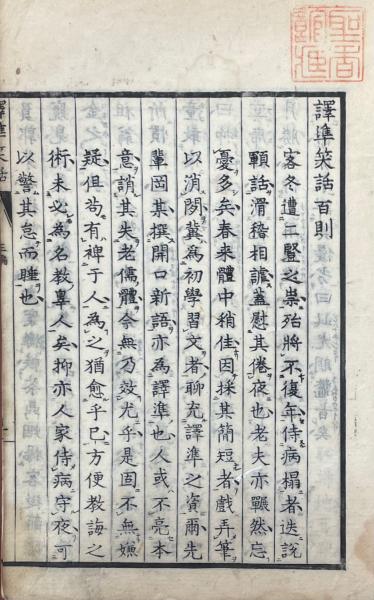 譯準笑話百則
客冬遭二豎之祟殆將不復年侍病榻者迭說
顆話滑稽相謔蓋慰其倦夜也老夫亦囅然忘
憂多矣春來體中稍佳因採其簡短者戲弄筆
以消閑冀為初學習文者聊充譯準之資爾先
輩岡某撰開口新語亦為譯準也人或不亮本
意誚其失老儒體令無乃效尤乎是固不無嫌
疑但苟有裨于人為之猶愈乎已方便教誨之
術未必為名教辠人矣抑亦人家侍病守夜可
以警其怠而睡也
譯準笑話